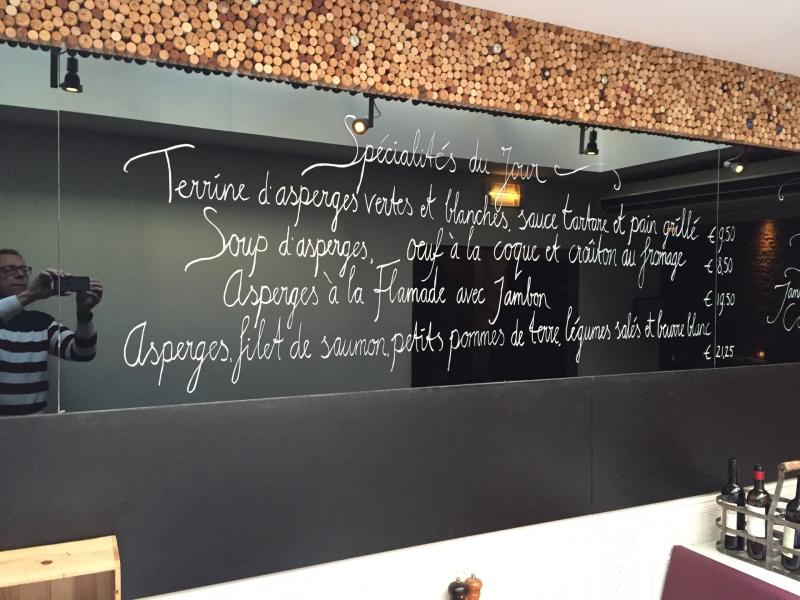 Spécialités du Jour
Terrine d'asperges vertes et blanches, sauce tartare et pain grillé € 9,50
Soup d'asperges, oeuf à la coque et croûton au fromage € 8,50
Asperges à la Flamade avec Jambon € 19,50
Asperges, filet de saumon, petits pommes de terre, légumes salés et beurre blanc
€ 21,25